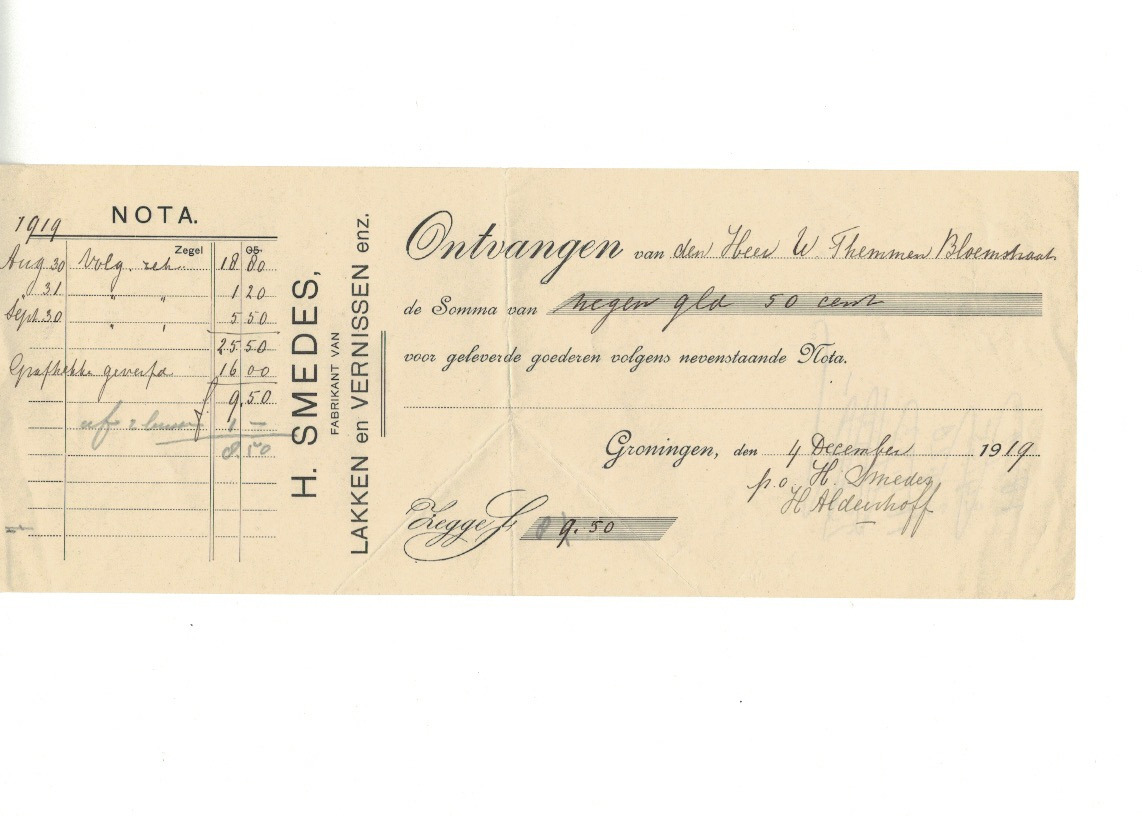 NOTA.
1919
Zegel 05
Aug 30 Volg. rek. 18 80
" 31 " " 1 20
Sept. 30 " " 5 50
25 50
Grafhekke geverfd 16 00
f 9.50
af 1 —
8.50
H. SMEDES,
FABRIKANT VAN
LAKKEN en VERNISSEN enz.
Ontvangen van den Heer W. Themmen Bloemstraat
de Somma van negen gld 50 cent
voor geleverde goederen volgens nevenstaande Nota.
Groningen, den 4 December 1919.
p.o. H. Smedes
H Aldenhoff
Zegge f 9.50